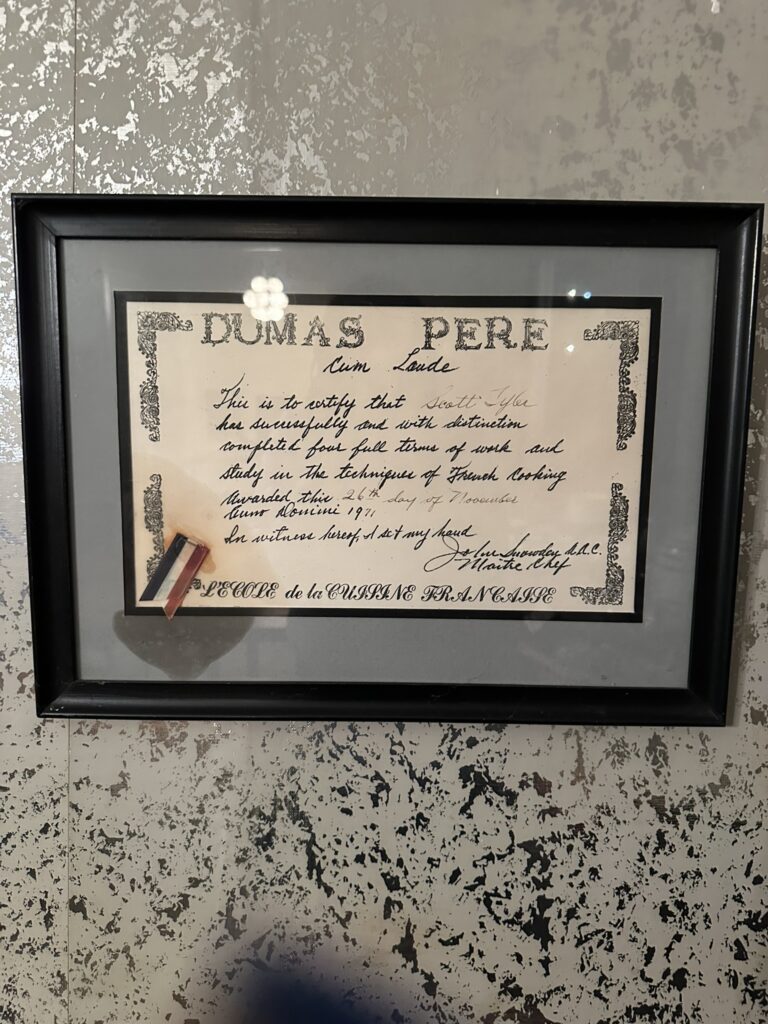 DUMAS PERE
Cum Laude
This is to certify that Scott Tyler
has successfully and with distinction
completed four full terms of work and
study in the techniques of French Cooking
Awarded this 26th day of November
Anno Domini 1971
In witness hereof, I set my hand
John Snowday D.A.C.
Maitre Chef
L'ECOLE de la CUISINE FRANCAISE